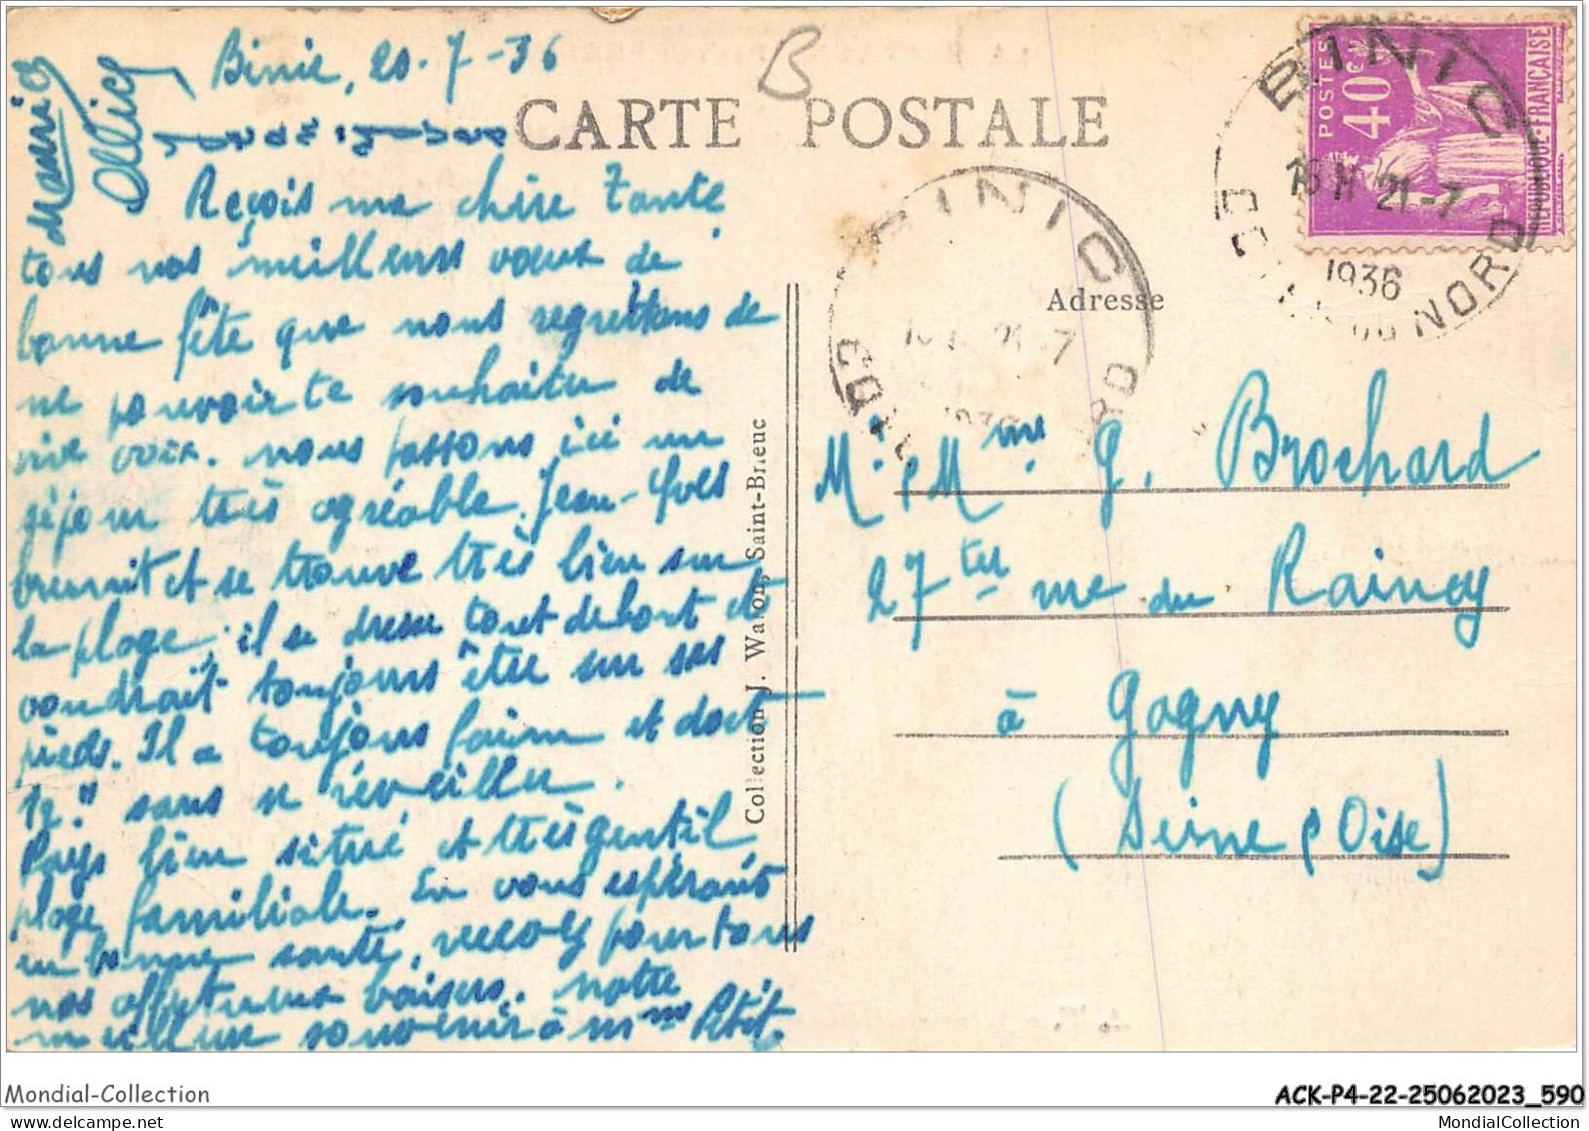 Binic, 20-7-36
CARTE POSTALE
B
Maurice
Allice
Jean-Yves
Reçois ma chère Tante
tous nos meilleurs vœux de
bonne fête que nous regrettons de
ne pouvoir te souhaiter de
vive voix. nous passons ici un
séjour très agréable. Jean-Yves
brunit et se trouve très bien sur
la plage, il se dresse tout debout et
voudrait toujours être sur ses
pieds. Il a toujours faim et dort
12h sans se réveiller.
Pays bien situé et très gentil
plage familiale. En vous espérant
en bonne santé, recevez pour tous
nos affectueux baisers. notre
meilleur souvenir à Mme Petit.
Collection J. Waron, Saint-Brieuc
POSTES
40 c.
REPUBLIQUE-FRANÇAISE
BINIC
21-7
1936
NORD
BINIC
21-7
1936
Adresse
M. & Mme G. Brochard
27ter rue du Raincy
à Gagny
(Seine & Oise)
Mondial-Collection
ACK-P4-22-25062023_590
MondialCollection